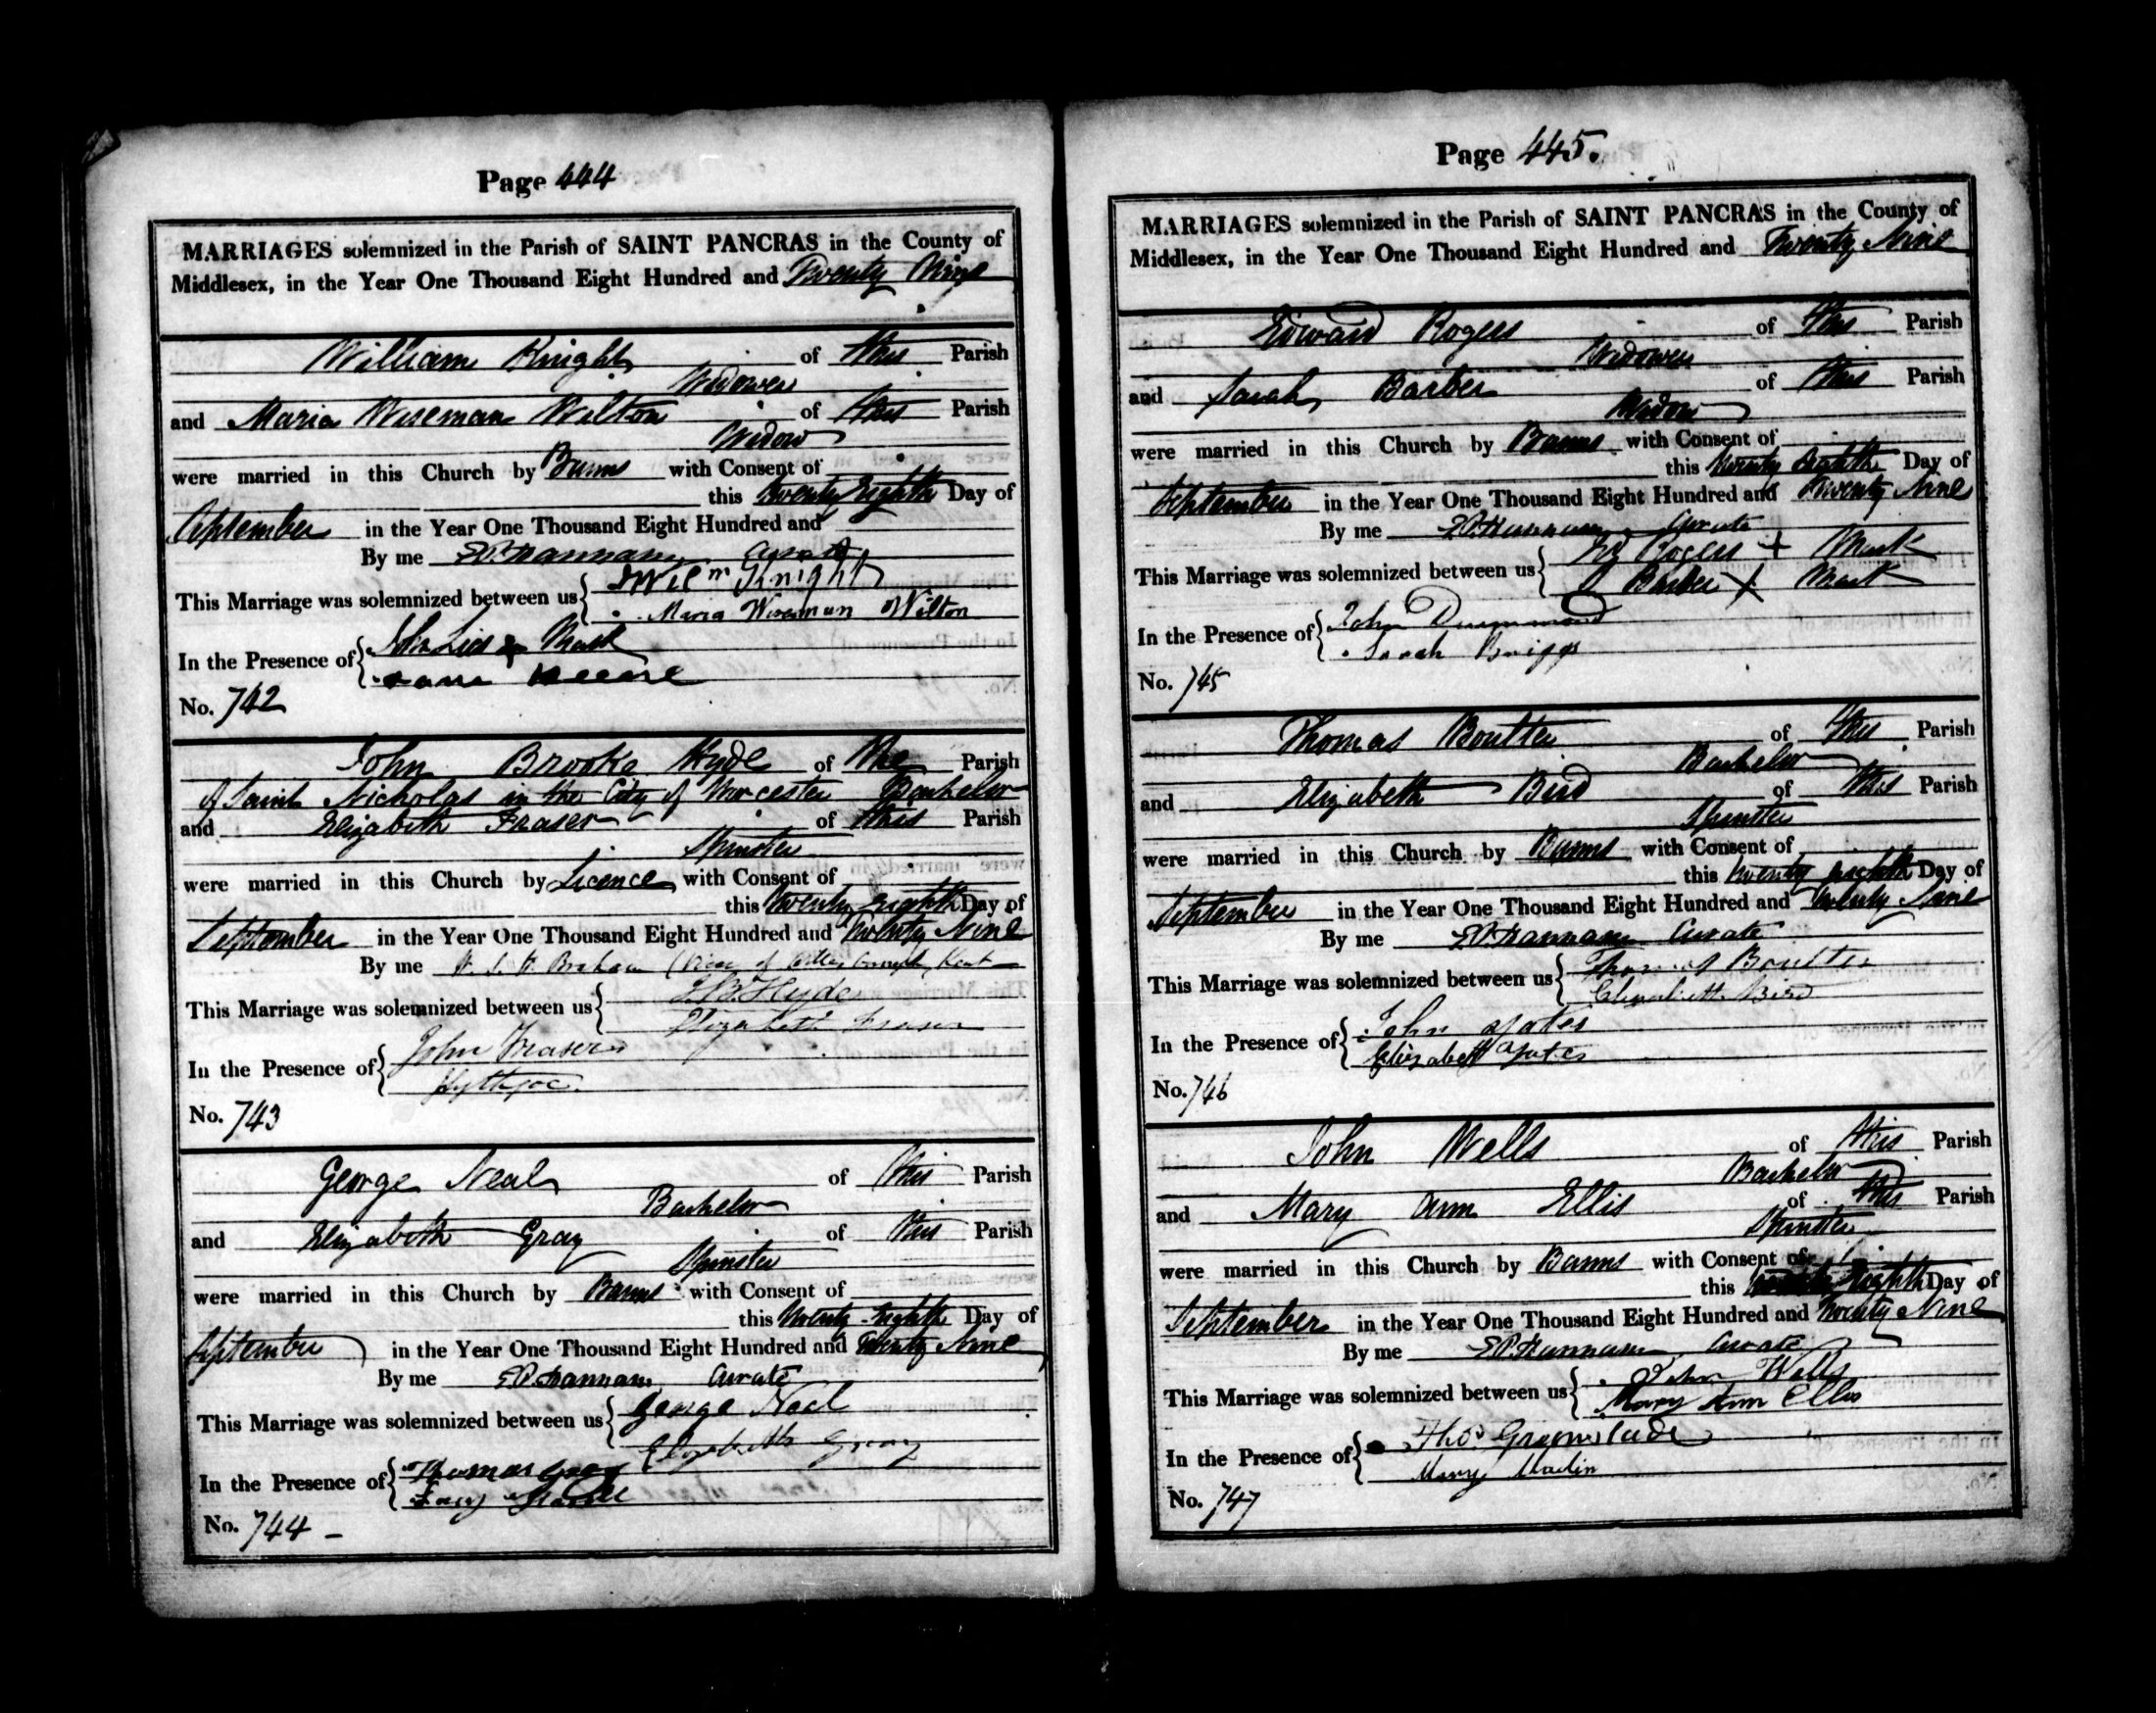 Page 444
MARRIAGES solemnized in the Parish of SAINT PANCRAS in the County of
Middlesex, in the Year One Thousand Eight Hundred and Twenty Nine
William Knight of this Parish
Widower
and Maria Wiseman Wilton of this Parish
Widow
were married in this Church by Banns with Consent of
this twenty Eighth Day of
September in the Year One Thousand Eight Hundred and
By me Hannam Curate
This Marriage was solemnized between us Wilm Knight
Maria Wiseman Wilton
In the Presence of Mark
No. 742
John Brooke Hyde of the Parish
of Saint Nicholas in the City of Worcester Bachelor
and Elizabeth Fraser of this Parish
Spinster
were married in this Church by Licence with Consent of
this twenty Eighth Day of
September in the Year One Thousand Eight Hundred and Twenty Nine
By me Kent
This Marriage was solemnized between us J.B. Hyde
Elizabeth Fraser
In the Presence of John Fraser
No. 743
George Neal of this Parish
Bachelor
and Elizabeth Gray of this Parish
Spinster
were married in this Church by Banns with Consent of
this twenty eighth Day of
September in the Year One Thousand Eight Hundred and Twenty Nine
By me Hannam Curate
This Marriage was solemnized between us George Neal
Elizabeth Gray
In the Presence of Thomas Gray
No. 744
Page 445.
MARRIAGES solemnized in the Parish of SAINT PANCRAS in the County of
Middlesex, in the Year One Thousand Eight Hundred and Twenty Nine
Edward Rogers of this Parish
Widower
and Sarah Barber of this Parish
Widow
were married in this Church by Banns with Consent of
this twenty Eighth Day of
September in the Year One Thousand Eight Hundred and Twenty Nine
By me Hannam Curate
This Marriage was solemnized between us Ed Rogers + Mark
S Barber X Mark
In the Presence of John Drummond
Sarah Briggs
No. 745
Thomas Boulter of this Parish
Bachelor
and Elizabeth Bird of this Parish
Spinster
were married in this Church by Banns with Consent of
this twenty eighth Day of
September in the Year One Thousand Eight Hundred and Twenty Nine
By me Hannam Curate
This Marriage was solemnized between us Thomas Boulter
Elizabeth Bird
In the Presence of John Yates
Elizabeth Yates
No. 746
John Wells of this Parish
Bachelor
and Mary Ann Ellis of this Parish
Spinster
were married in this Church by Banns with Consent of
this twenty Eighth Day of
September in the Year One Thousand Eight Hundred and Twenty Nine
By me Hannam Curate
This Marriage was solemnized between us John Wells
Mary Ann Ellis
In the Presence of Thos Greenslade
Mary
No. 747